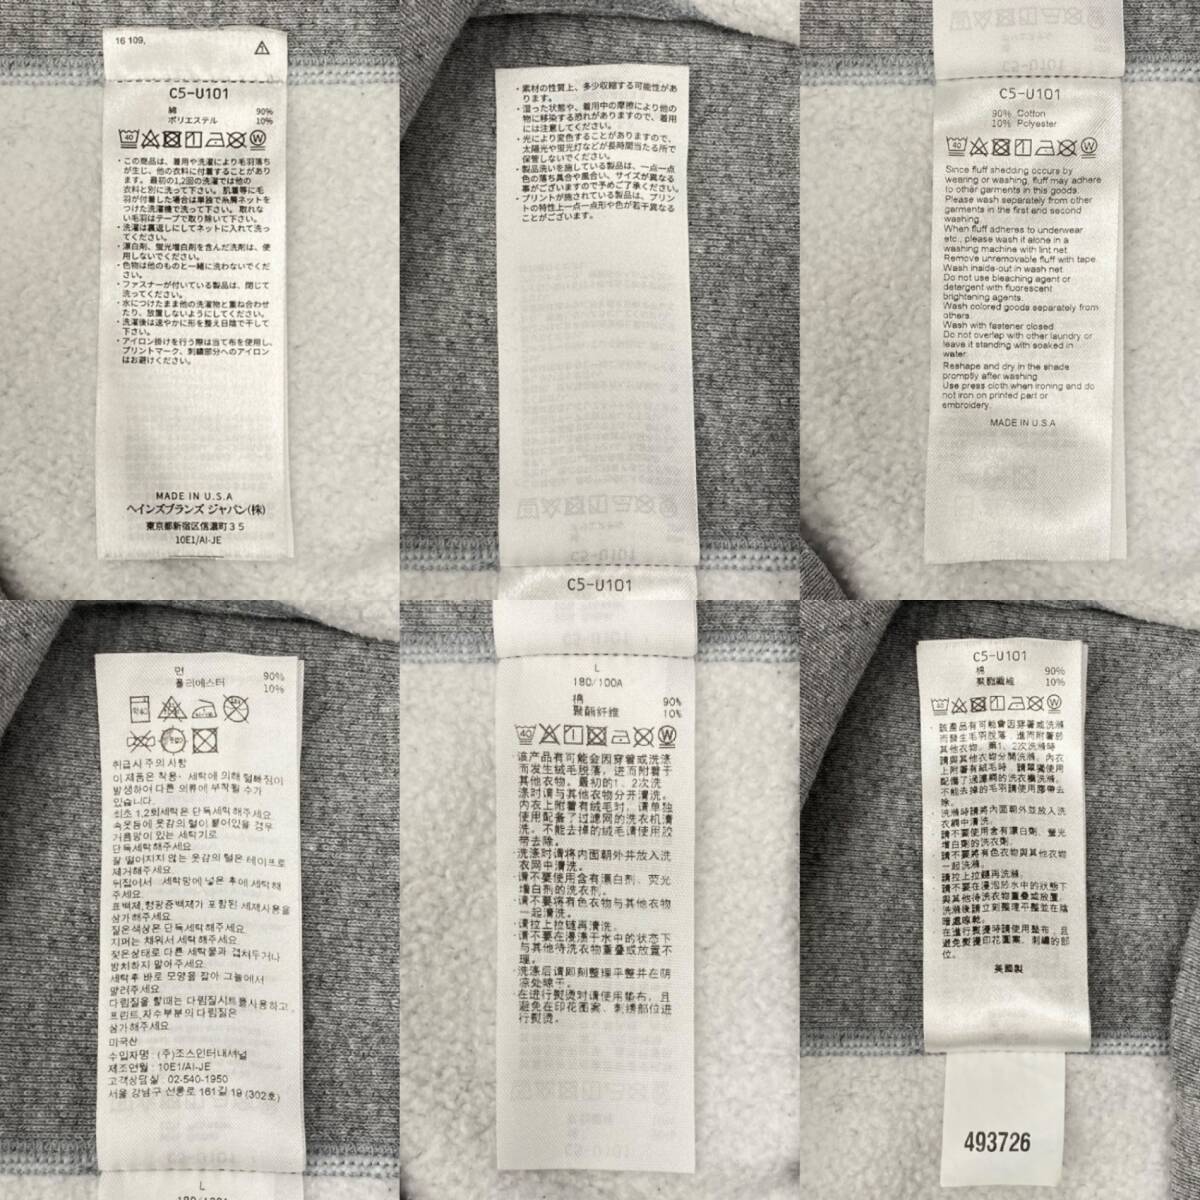 16 109,
C5-U101
綿 90%
ポリエステル 10%
・この商品は、着用や洗濯により毛羽落ち
が生じ、他の衣料に付着することがあり
ます。最初の1,2回の洗濯では他の
衣料と別に洗って下さい。肌着等に毛
羽が付着した場合は単独で糸屑ネットを
つけた洗濯機で洗って下さい。取れな
い毛羽はテープで取り除いて下さい。
・洗濯は裏返しにしてネットに入れて洗っ
てください。
・漂白剤、蛍光増白剤を含んだ洗剤は、使
用しないでください。
・色物は他のものと一緒に洗わないでくだ
さい。
・ファスナーが付いている製品は、閉じて
洗ってください。
・水につけたまま他の洗濯物と重ね合わせ
たり、放置しないようにしてください。
・洗濯後は速やかに形を整え日陰で干して
下さい。
・アイロン掛けを行う際は当て布を使用し、
プリントマーク、刺繍部分へのアイロン
はお避けください。
MADE IN U.S.A
ヘインズブランズ ジャパン(株)
東京都新宿区信濃町35
10E1/AI-JE
・素材の性質上、多少収縮する可能性があ
ります。
・湿った状態や、着用中の摩擦により他の
物に移染する恐れがありますので、着用
には注意してください。
・光により変色することがありますので、
太陽光や蛍光灯などが長時間当たる所で
保管しないでください。
・製品洗いを施している製品は、一点一点
色の落ち具合や風合い、サイズが異なる
事がございますので予めご了承ください。
・プリントが施されている製品は、プリン
トの特性上一点一点形や色が若干異なる
ことがございます。
C5-U101
C5-U101
90% Cotton
10% Polyester
Since fluff shedding occurs by
wearing or washing, fluff may adhere
to other garments in this goods.
Please wash separately from other
garments in the first and second
washing.
When fluff adheres to underwear
etc., please wash it alone in a
washing machine with lint net.
Remove unremovable fluff with tape.
Wash inside-out in wash net
Do not use bleaching agent or
detergent with fluorescent
brightening agents.
Wash colored goods separately from
others.
Wash with fastener closed
Do not overlap with other laundry or
leave it standing with soaked in
water.
Reshape and dry in the shade
promptly after washing.
Use press cloth when ironing and do
not iron on printed part or
embroidery.
MADE IN U.S.A
면 90%
폴리에스터 10%
취급시 주의 사항
이 제품은 착용· 세탁에 의해 털빠짐이
발생하여 다른 의류에 부착될 수가
있습니다.
최초 1,2회 세탁은 단독세탁해주세요.
속옷등에 옷감의 털이 붙어있을 경우
거름망이 있는 세탁기로
단독세탁해주세요.
잘 떨어지지 않는 옷감의 털은 테이프로
제거해주세요.
뒤집어서 세탁망에 넣은 후에 세탁해
주세요.
표백제,형광증백제가 포함된 세제사용을
삼가해주세요.
짙은색상은 단독세탁해주세요.
지퍼는 채워서 세탁해주세요.
젖은상태로 다른 세탁물과 겹쳐두거나
방치하지 말아주세요.
세탁후 바로 모양을 잡아 그늘에서
말려주세요.
다림질을 할때는 다림질시트를사용하고,
프린트,자수부분의 다림질은
삼가해주세요.
미국산
수입자명 : (주)조스인터내셔널
제조연월 : 10E1/AI-JE
고객상담실 : 02-540-1950
서울 강남구 선릉로 161길 19 (302호)
L
L
180/100A
棉 90%
聚酯纤维 10%
该产品有可能会因穿著或洗涤
而发生绒毛脱落，进而附着于
其他衣物。最初的1、2次洗
涤时请与其他衣物分开清洗。
内衣上附着有绒毛时，请单独
使用配备了过滤网的洗衣机清
洗。不能去掉的绒毛请使用胶
带去除。
·洗涤时请将内面朝外并放入洗
衣网中清洗。
·请不要使用含有漂白剂、荧光
增白剂的洗衣剂。
·请不要将有色衣物与其他衣物
一起清洗。
·请拉上拉链再清洗。
·请不要在浸渍于水中的状态下
与其他待洗衣物重叠或放置不
理。
·洗涤后请即刻整理平整并在阴
凉处晾干。
·在进行熨烫时请使用垫布，且
避免在印花图案、刺绣部位进
行熨烫。
C5-U101
棉 90%
聚酯纖維 10%
·該產品有可能會因穿著或洗滌
而發生毛羽脫落，進而附著於
其他衣物。第1、2次洗滌時
請與其他衣物分開洗滌。內衣
上附著有絨毛時，請單獨使用
配備了過濾網的洗衣機洗滌。
不能去掉的毛羽請使用膠帶去
除。
·洗滌時請將內面朝外並放入洗
衣網中清洗。
·請不要使用含有漂白劑、螢光
增白劑的洗衣劑。
·請不要將有色衣物與其他衣物
一起洗滌。
·請拉上拉鏈再洗滌。
·請不要在浸泡於水中的狀態下
與其他待洗衣物重疊或放置。
·洗滌後請立刻整理平整並在陰
暗處晾乾。
·在進行熨燙時請使用墊布，且
避免熨燙印花圖案、刺繡的部
位。
美國製
493726